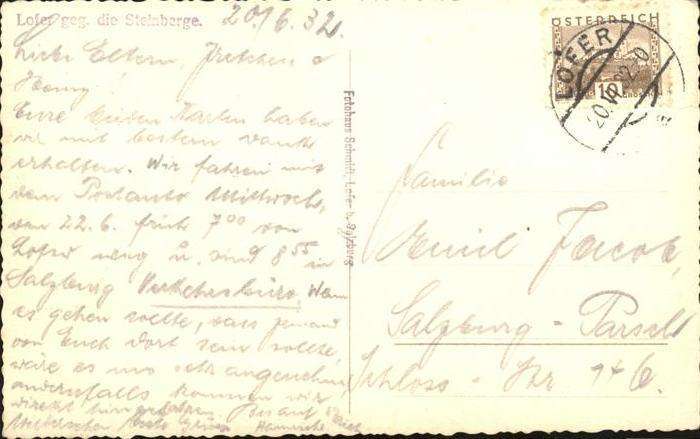 Lofer geg. die Steinberge.
20/6.32.
Liebe Eltern, Gretchen u
Henny
Eure beiden Karten haben
wir mit bestem Dank
erhalten. Wir fahren mit
dem Postauto Mittwoch,
den 22.6. früh 7⁰⁰ von
Lofer weg u. sind 8⁵⁵ in
Salzburg Verkehrsbüro. Wenn
es gehen sollte, dass jemand
von Euch dort sein sollte,
wäre es uns sehr angenehm,
andernfalls kommen wir
direkt hin. Bis auf
Grüsse
Fotohaus Schmidt, Lofer b. Salzburg
ÖSTERREICH
10
LOFER
Familie
Emil Jacob,
Salzburg - Parsch
Schloss - Str